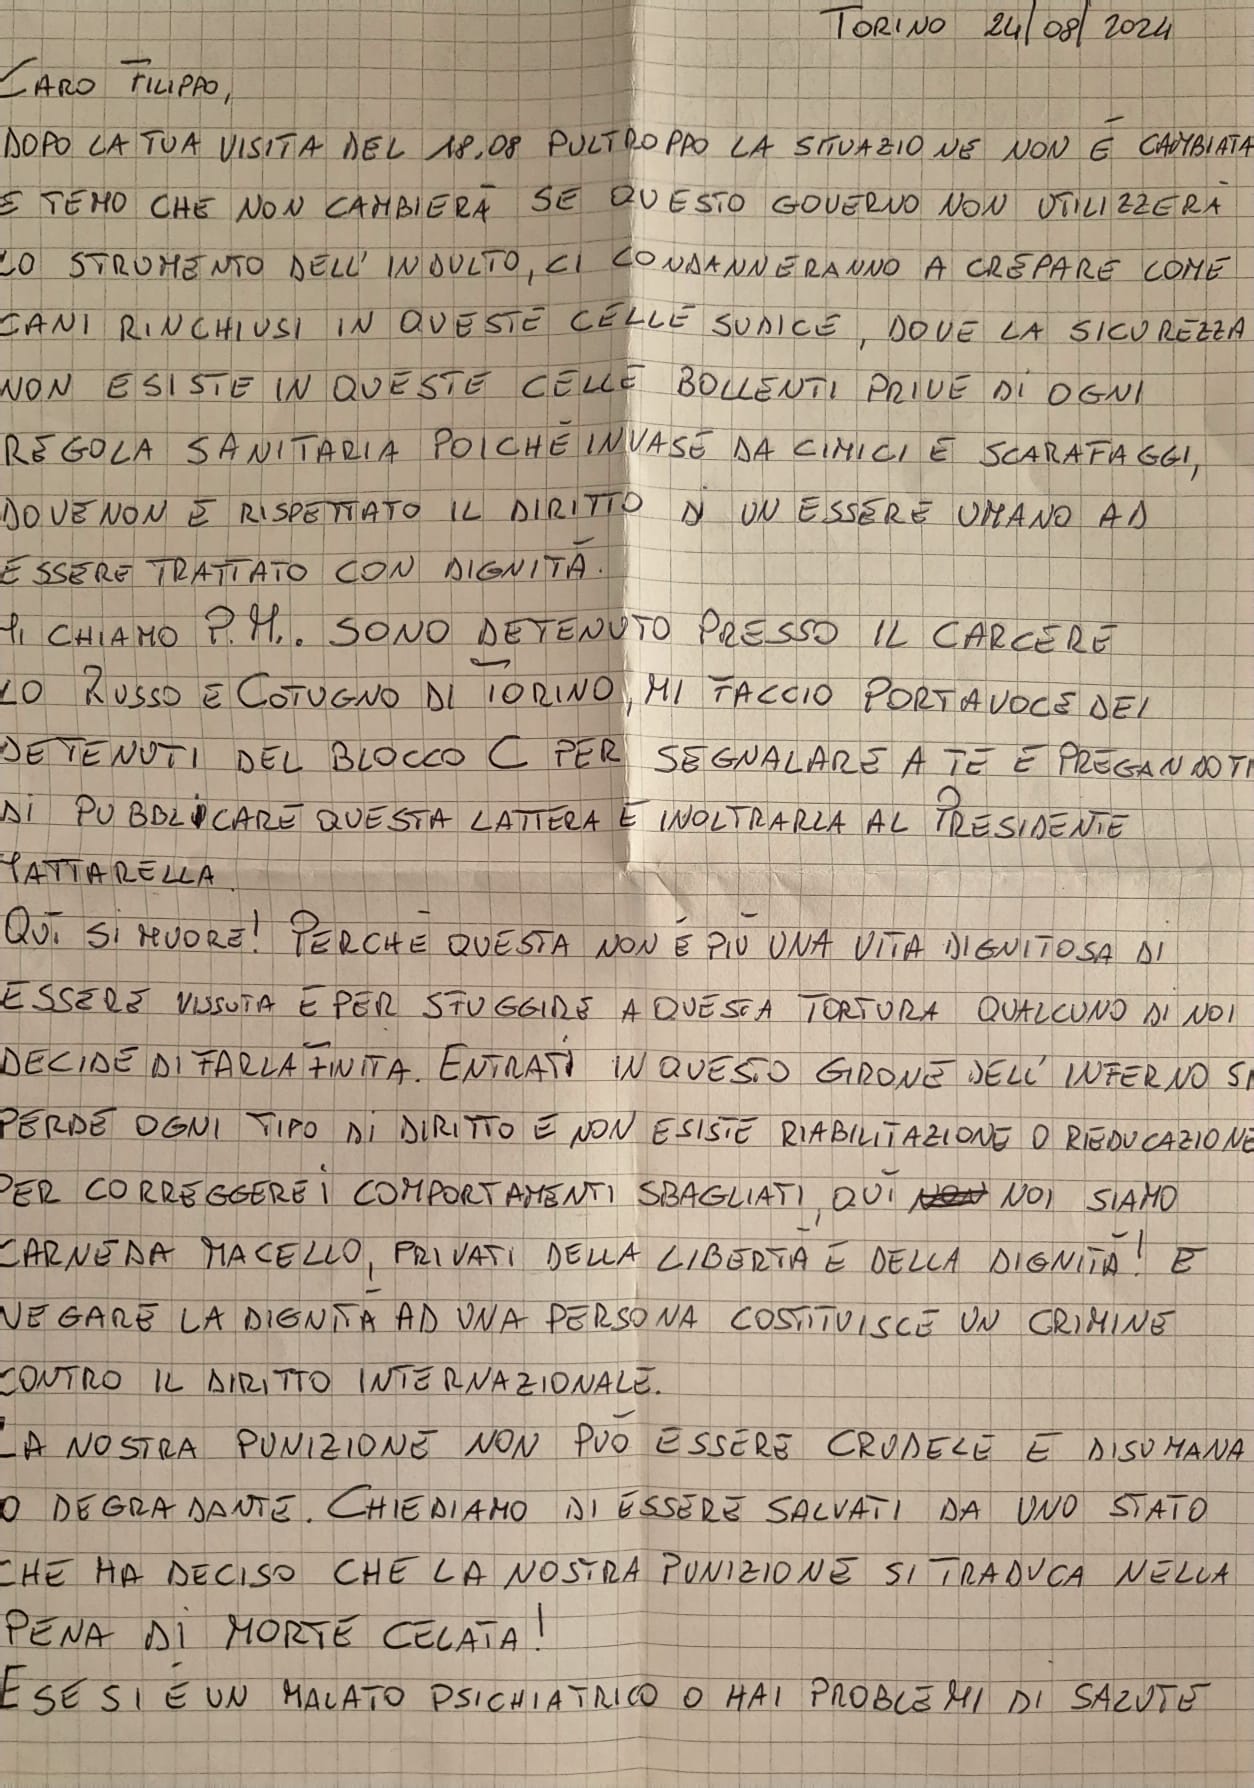 TORINO 24/08/2024
CARO FILIPPO,
DOPO LA TUA VISITA DEL 18.08 PULTROPPO LA SITUAZIONE NON È CAMBIATA
E TEMO CHE NON CAMBIERÀ SE QUESTO GOVERNO NON UTILIZZERÀ
LO STRUMENTO DELL'INDULTO, CI CONDANNERANNO A CREPARE COME
CANI RINCHIUSI IN QUESTE CELLE SUDICE, DOVE LA SICUREZZA
NON ESISTE IN QUESTE CELLE BOLLENTI PRIVE DI OGNI
REGOLA SANITARIA POICHÈ INVASE DA CIMICI E SCARAFAGGI,
DOVE NON È RISPETTATO IL DIRITTO DI UN ESSERE UMANO AD
ESSERE TRATTATO CON DIGNITÀ.
MI CHIAMO P.M.. SONO DETENUTO PRESSO IL CARCERE
LO RUSSO E COTUGNO DI TORINO, MI FACCIO PORTAVOCE DEI
DETENUTI DEL BLOCCO C PER SEGNALARE A TE E PREGANDOTI
DI PUBBLICARE QUESTA LATTERA E INOLTRARLA AL PRESIDENTE
MATTARELLA.
QUÌ SI MUORE! PERCHÈ QUESTA NON È PIÙ UNA VITA DIGNITOSA DI
ESSERE VISSUTA E PER SFUGGIRE A QUESTA TORTURA QUALCUNO DI NOI
DECIDE DI FARLA FINITA. ENTRATI IN QUESTO GIRONE DELL'INFERNO SI
PERDE OGNI TIPO DI DIRITTO E NON ESISTE RIABILITAZIONE O RIEDUCAZIONE
PER CORREGGERE I COMPORTAMENTI SBAGLIATI, QUÌ NON NOI SIAMO
CARNE DA MACELLO, PRIVATI DELLA LIBERTÀ E DELLA DIGNITÀ! E
NEGARE LA DIGNITÀ AD UNA PERSONA COSTITUISCE UN CRIMINE
CONTRO IL DIRITTO INTERNAZIONALE.
LA NOSTRA PUNIZIONE NON PUÒ ESSERE CRUDELE E DISUMANA
O DEGRADANTE. CHIEDIAMO DI ESSERE SALVATI DA UNO STATO
CHE HA DECISO CHE LA NOSTRA PUNIZIONE SI TRADUCA NELLA
PENA DI MORTE CELATA!
E SE SI È UN MALATO PSICHIATRICO O HAI PROBLEMI DI SALUTE